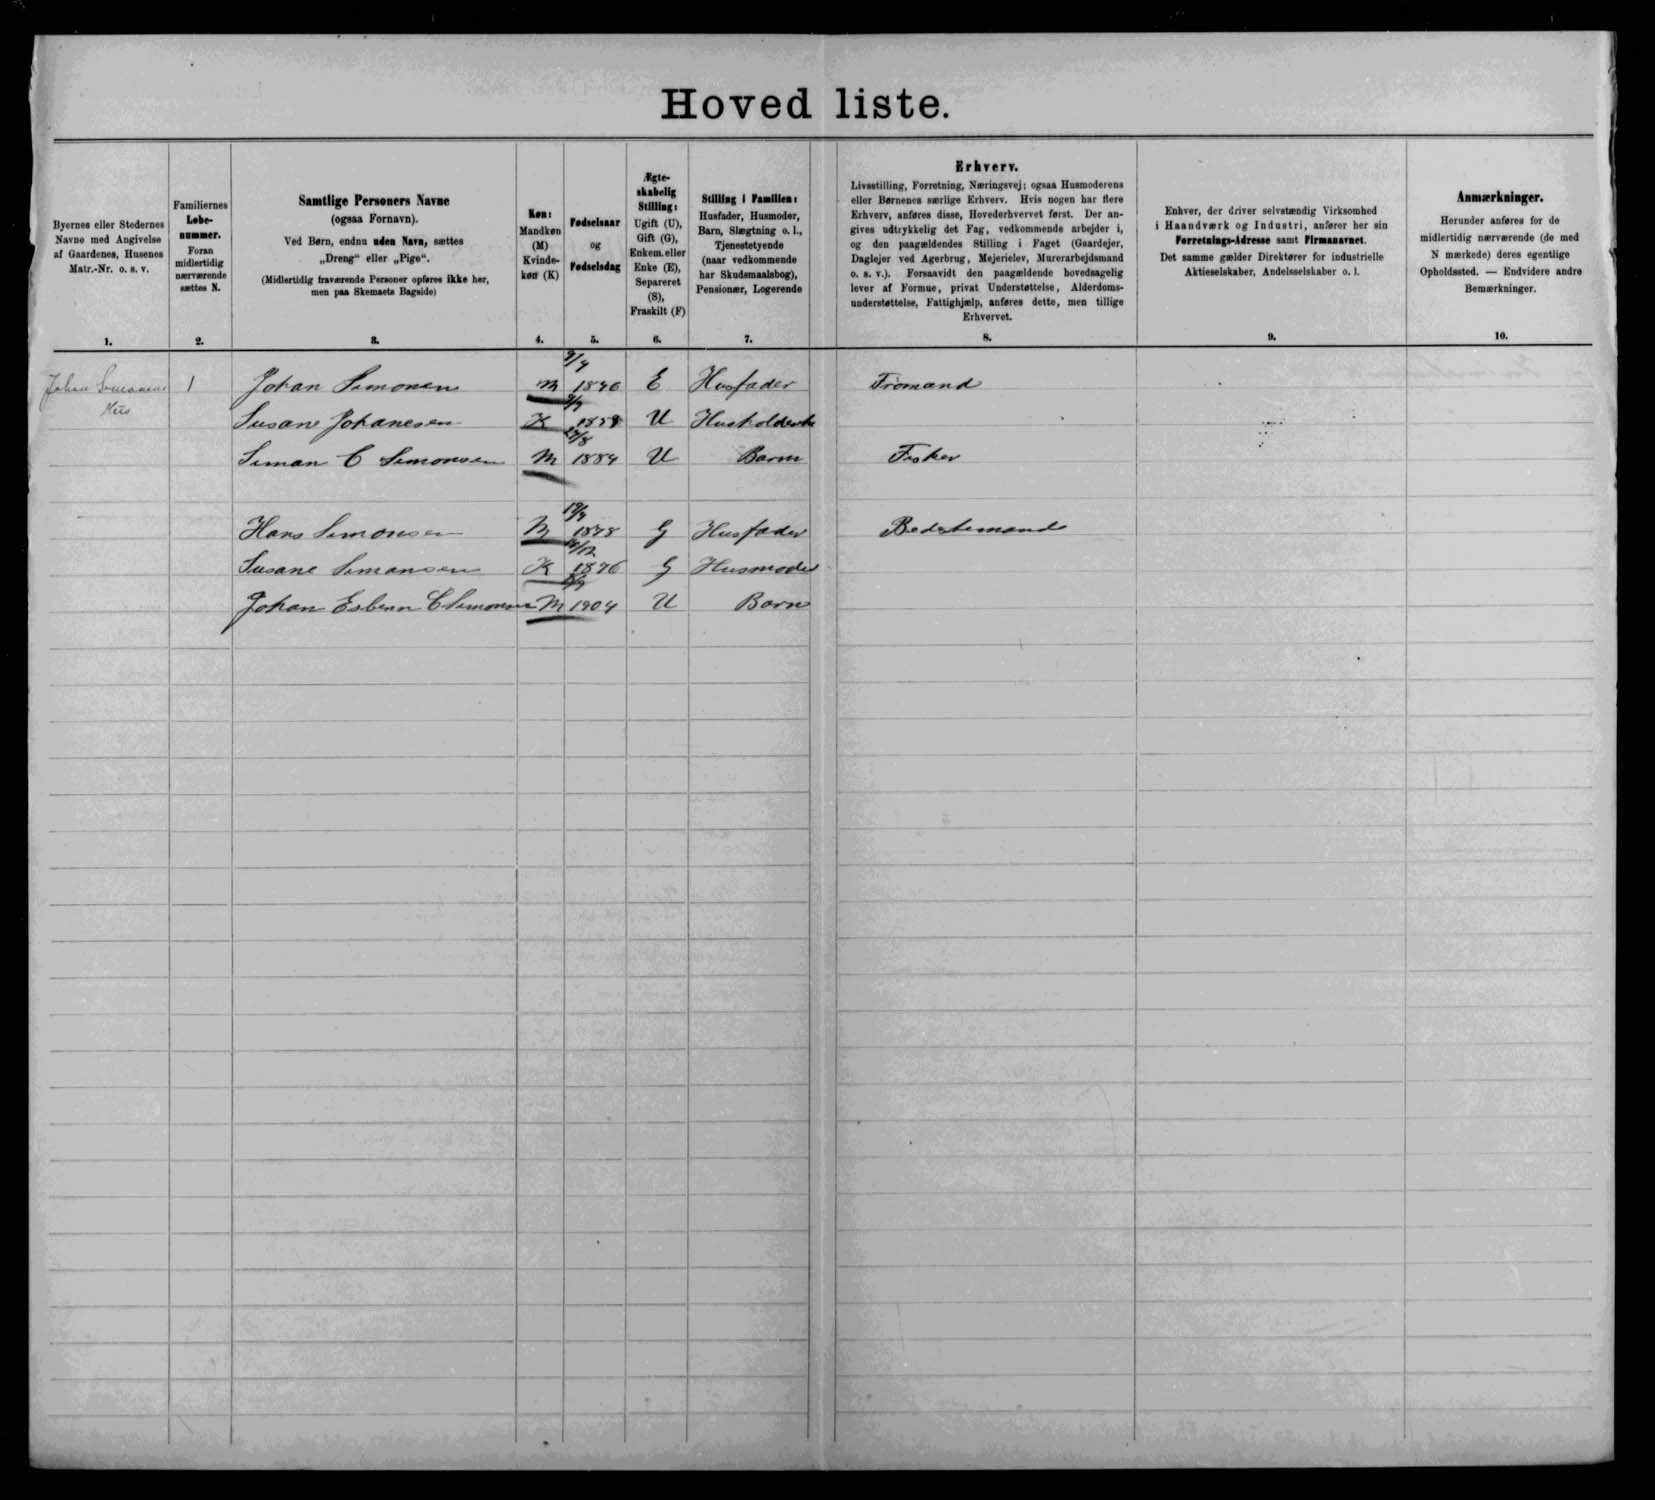 Hoved liste.
Byernes eller Stedernes
Navne med Angivelse
af Gaardenes, Husenes
Matr.-Nr. o. s. v.
1.
Familiernes
Løbe-
nummer.
Foran
midlertidig
nærværende
sættes N.
2.
Samtlige Personers Navne
(ogsaa Fornavn).
Ved Børn, endnu uden Navn, sættes
„Dreng“ eller „Pige“.
(Midlertidig fraværende Personer opføres ikke her,
men paa Skemaets Bagside)
3.
Køn:
Mandkøn
(M)
Kvinde-
køn (K)
4.
Fødselsaar
og
Fødselsdag
5.
Ægte-
skabelig
Stilling:
Ugift (U),
Gift (G),
Enkem. eller
Enke (E),
Separeret
(S),
Fraskilt (F)
6.
Stilling i Familien:
Husfader, Husmoder,
Barn, Slægtning o. l.,
Tjenestetyende
(naar vedkommende
har Skudsmaalsbog),
Pensionær, Logerende
7.
Erhverv.
Livsstilling, Forretning, Næringsvej; ogsaa Husmoderens
eller Børnenes særlige Erhverv. Hvis nogen har flere
Erhverv, anføres disse, Hovederhvervet først. Der an-
gives udtrykkelig det Fag, vedkommende arbejder i,
og den paagældendes Stilling i Faget (Gaardejer,
Daglejer ved Agerbrug, Mejerielev, Murerarbejdsmand
o. s. v.). Forsaavidt den paagældende hovedsagelig
lever af Formue, privat Understøttelse, Alderdoms-
understøttelse, Fattighjælp, anføres dette, men tillige
Erhvervet.
8.
Enhver, der driver selvstændig Virksomhed
i Haandværk og Industri, anfører her sin
Forretnings-Adresse samt Firmanavnet.
Det samme gælder Direktører for industrielle
Aktieselskaber, Andelsselskaber o. l.
9.
Anmærkninger.
Herunder anføres for de
midlertidig nærværende (de med
N mærkede) deres egentlige
Opholdssted. — Endvidere andre
Bemærkninger.
10.
Johan Simonens 1 Johan Simonen M 1846 E Husfader Tromand
Hus
Susane Johanesen K U
Siman C Simonsen M 1884 U Barn Fisker
Hans Simonsen M 1878 G Husfader Bedstemand
Susane Simansen K 1876 G Husmoder
Johan Esbern C Simonsen M 1904 U Barn